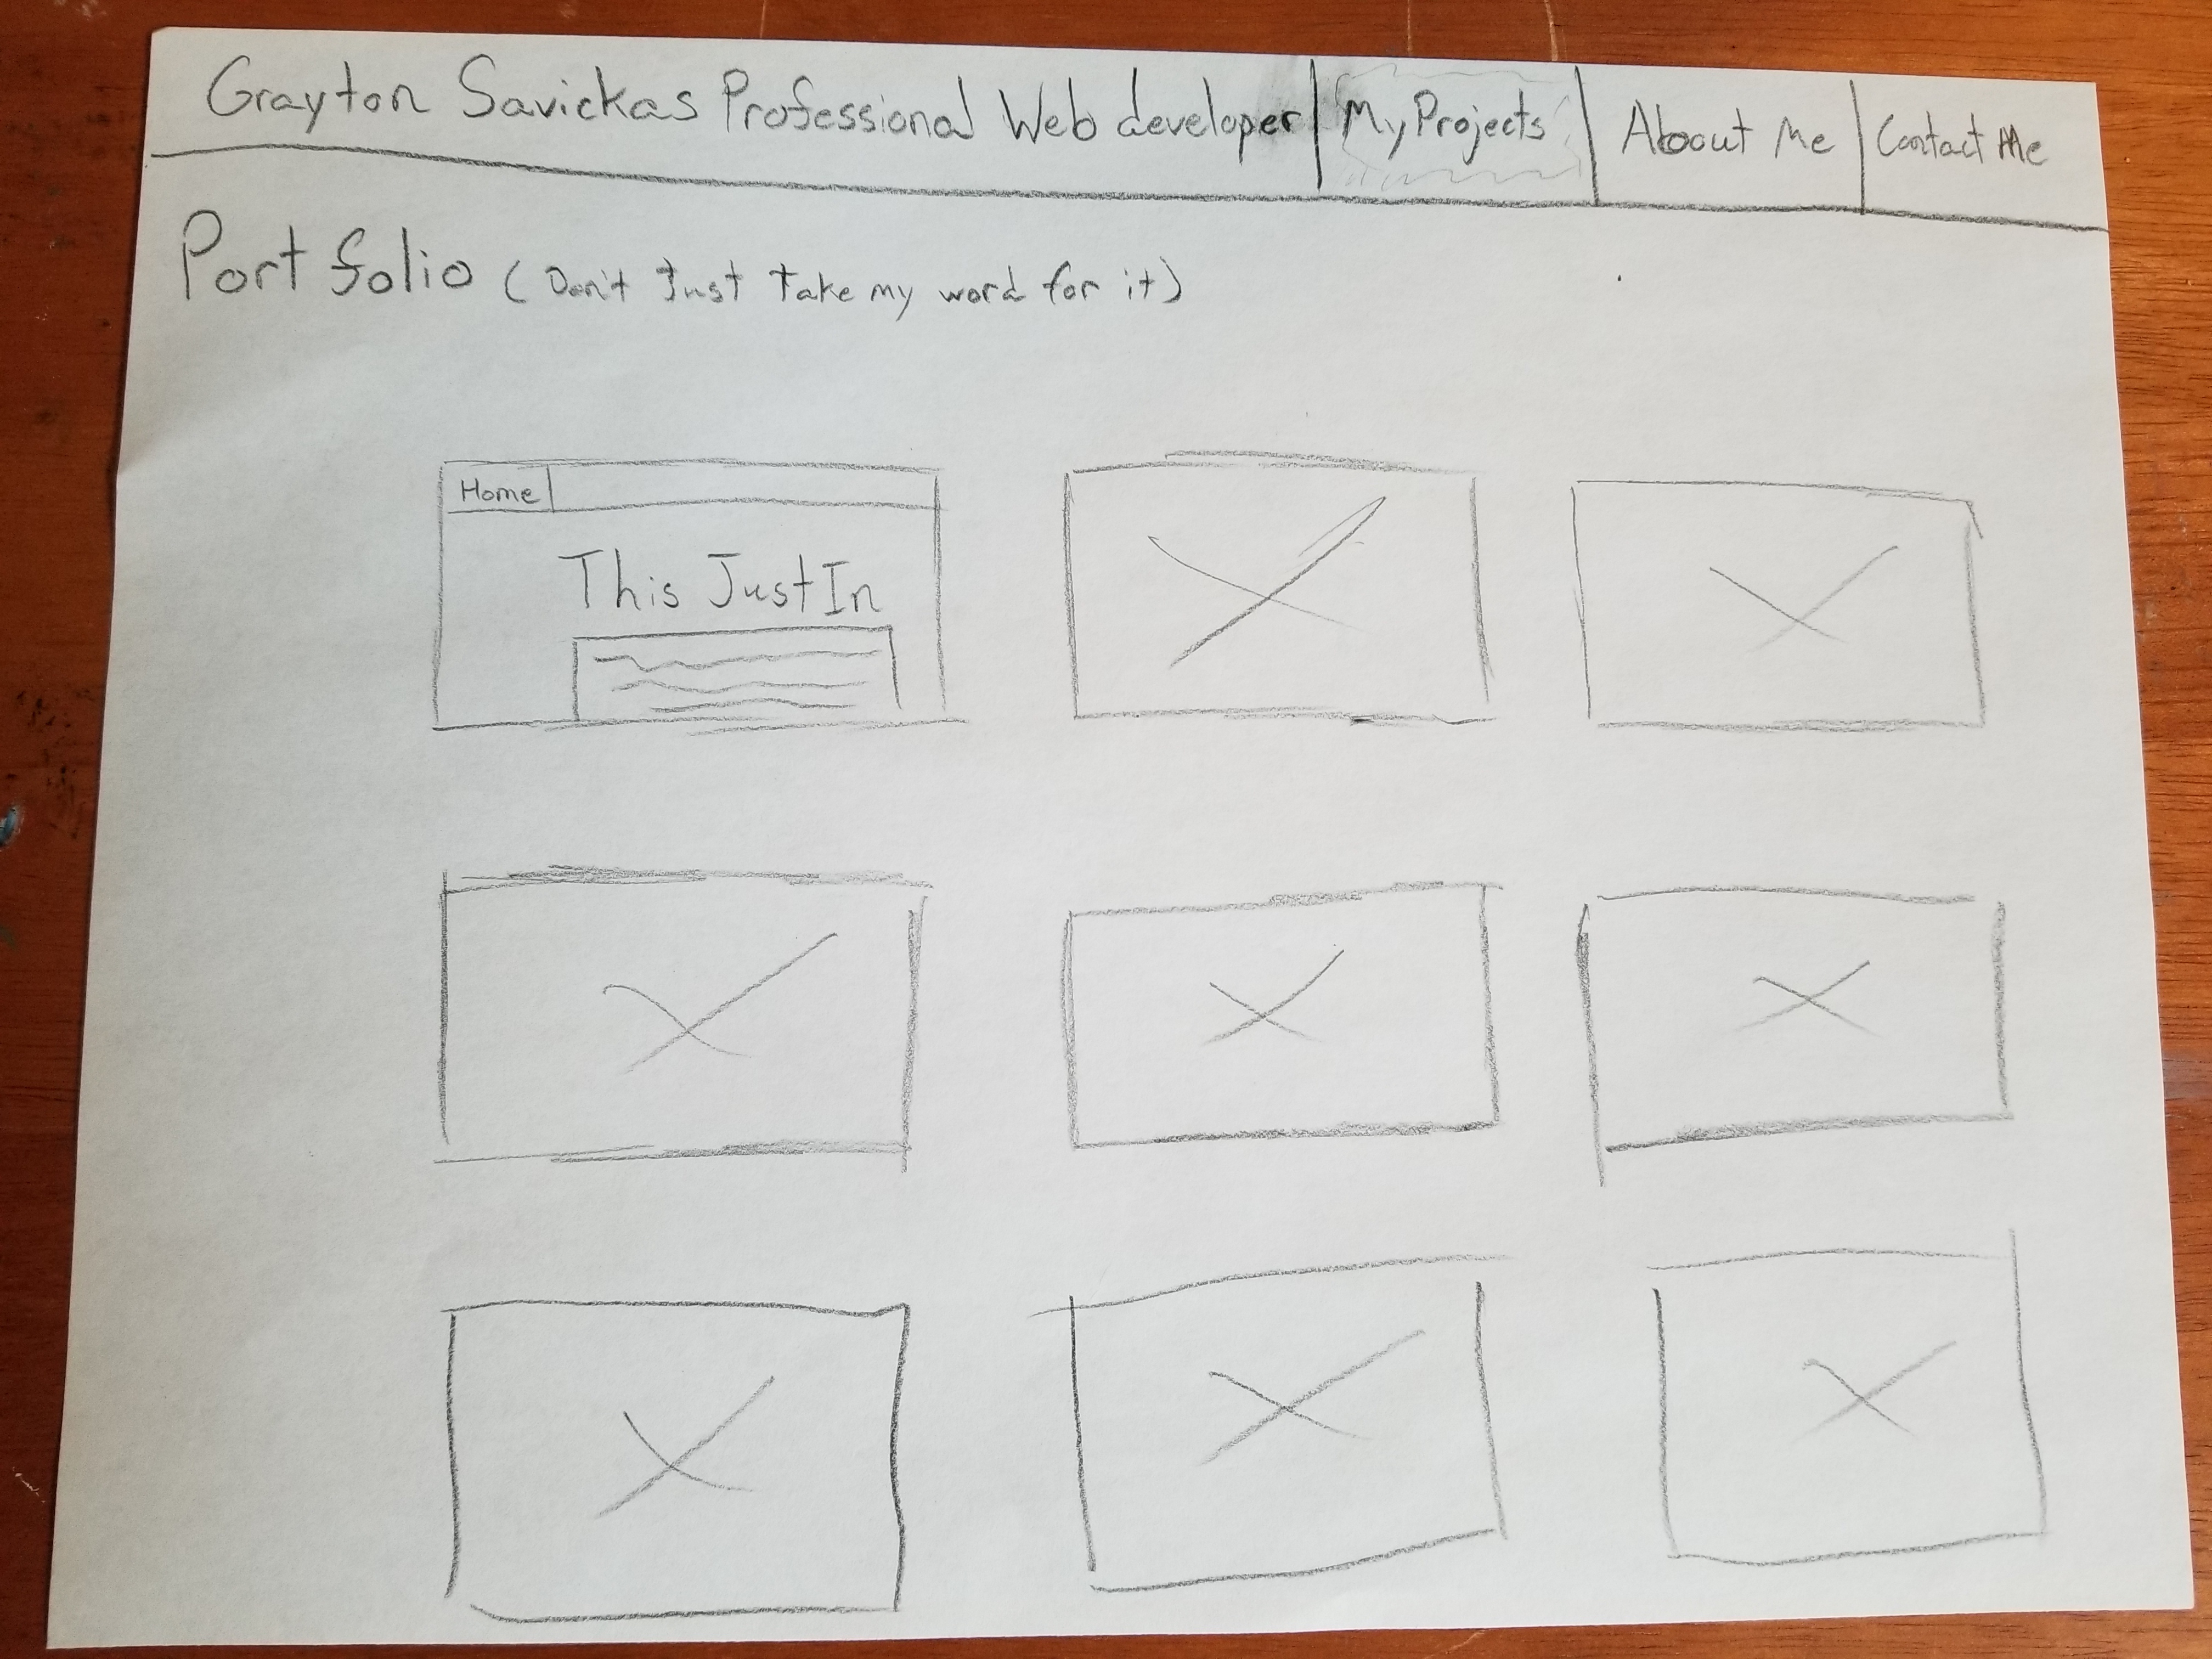 Grayton Savickas Professional Web developer My Projects About Me Contact Me
Portfolio (Don't Just take my word for it)
Home
This Just In